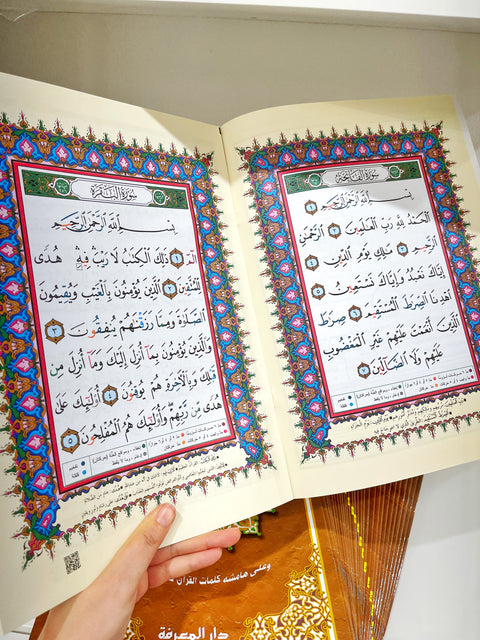 سُورَةُ الْفَاتِحَةِ
بِسْمِ ٱللَّهِ ٱلرَّحْمَٰنِ ٱلرَّحِيمِ ١
ٱلْحَمْدُ لِلَّهِ رَبِّ ٱلْعَٰلَمِينَ ٢ ٱلرَّحْمَٰنِ
ٱلرَّحِيمِ ٣ مَٰلِكِ يَوْمِ ٱلدِّينِ ٤
إِيَّاكَ نَعْبُدُ وَإِيَّاكَ نَسْتَعِينُ ٥
ٱهْدِنَا ٱلصِّرَٰطَ ٱلْمُسْتَقِيمَ ٦ صِرَٰطَ
ٱلَّذِينَ أَنْعَمْتَ عَلَيْهِمْ غَيْرِ ٱلْمَغْضُوبِ
عَلَيْهِمْ وَلَا ٱلضَّآلِّينَ ٧
سُورَةُ الْبَقَرَةِ
بِسْمِ ٱللَّهِ ٱلرَّحْمَٰنِ ٱلرَّحِيمِ
الٓمٓ ١ ذَٰلِكَ ٱلْكِتَٰبُ لَا رَيْبَ فِيهِ هُدًى
لِّلْمُتَّقِينَ ٢ ٱلَّذِينَ يُؤْمِنُونَ بِٱلْغَيْبِ وَيُقِيمُونَ
ٱلصَّلَوٰةَ وَمِمَّا رَزَقْنَٰهُمْ يُنفِقُونَ ٣
وَٱلَّذِينَ يُؤْمِنُونَ بِمَآ أُنزِلَ إِلَيْكَ وَمَآ أُنزِلَ مِن
قَبْلِكَ وَبِٱلْءَاخِرَةِ هُمْ يُوقِنُونَ ٤ أُو۟لَٰٓئِكَ عَلَىٰ
هُدًى مِّن رَّبِّهِمْ وَأُو۟لَٰٓئِكَ هُمُ ٱلْمُفْلِحُونَ ٥
وعلى هامشه كلمات القرآن
دار المعرفة